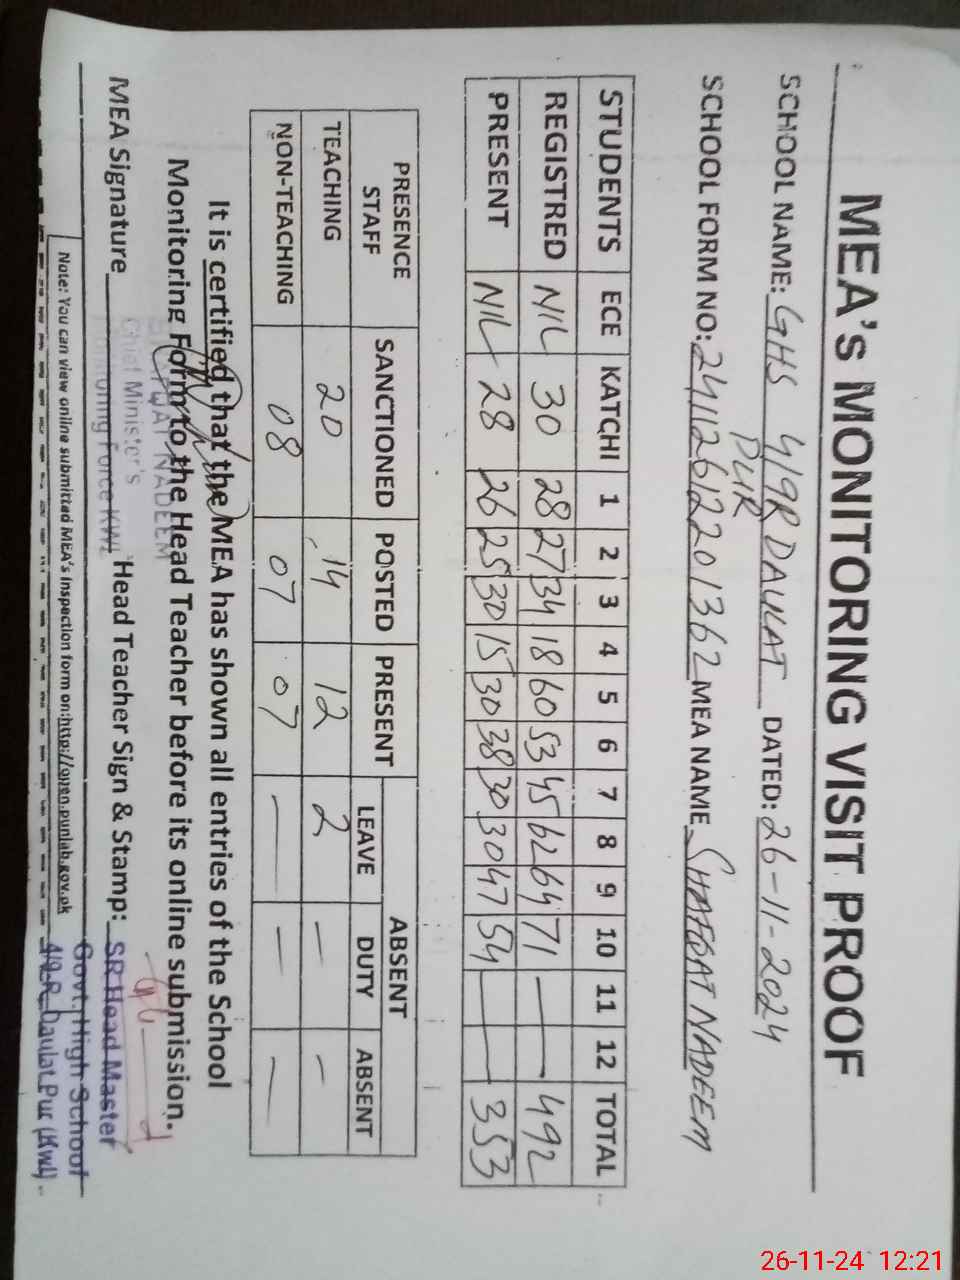 MEA's MONITORING VISIT PROOF
SCHOOL NAME: GHS 4/9R DAULAT PUR DATED: 26-11-2024
SCHOOL FORM NO: 2411261220 1362 MEA NAME SHAFQAT NADEEM
STUDENTS ECE KATCHI 1 2 3 4 5 6 7 8 9 10 11 12 TOTAL
REGISTRED NIL 30 28 27 34 18 60 53 45 62 64 71 — — 492
PRESENT NIL 28 26 25 30 15 30 38 30 30 47 54 — — 353
PRESENCE STAFF SANCTIONED POSTED PRESENT ABSENT
LEAVE DUTY ABSENT
TEACHING 20 14 12 2 — —
NON-TEACHING 08 07 07 — — —
It is certified that the MEA has shown all entries of the School
Monitoring Form to the Head Teacher before its online submission.
SHAFQAT NADEEM
Chief Minister's
Monitoring Force KWL
MEA Signature Head Teacher Sign & Stamp: SR Head Master
Govt. High School
4/9-R Daulat Pur (KWL)
Note: You can view online submitted MEA's inspection form on:http://open.punjab.gov.pk
26-11-24 12:21